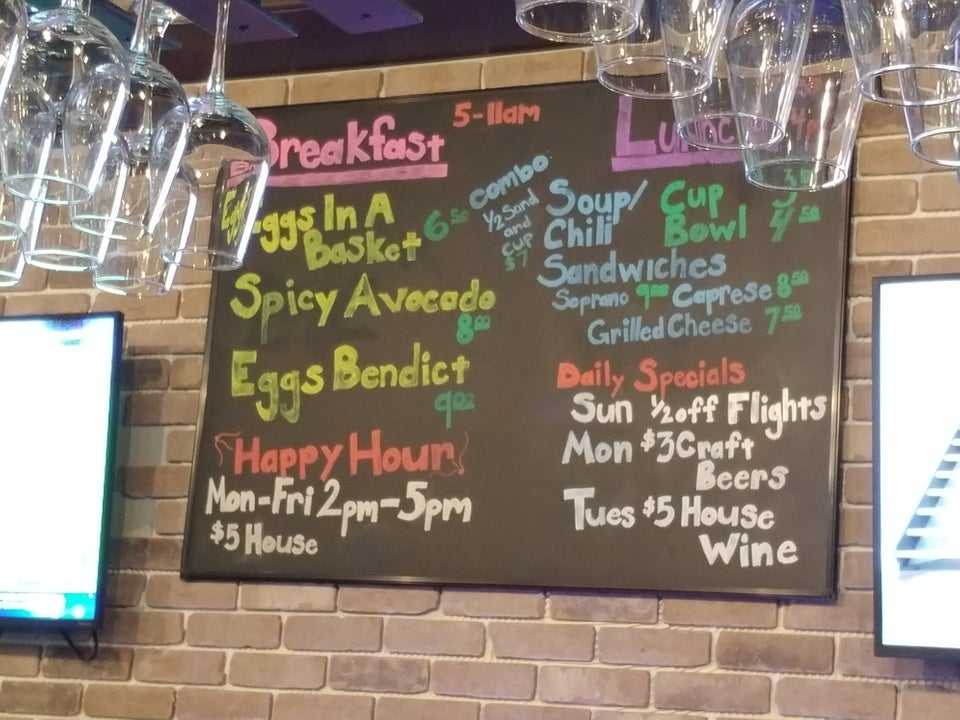 Breakfast 5-11am
Eggs In A
Basket 6.50
Spicy Avocado
8.00
Eggs Bendict
9.00
Happy Hour
Mon-Fri 2pm-5pm
$5 House
Combo
1/2 Sand
and
Cup
$7
Soup/ Cup
Chili Bowl 4.50
Sandwiches
Soprano 9.00 Caprese 8.50
Grilled Cheese 7.50
Daily Specials
Sun 1/2 off Flights
Mon $3 Craft
Beers
Tues $5 House
Wine